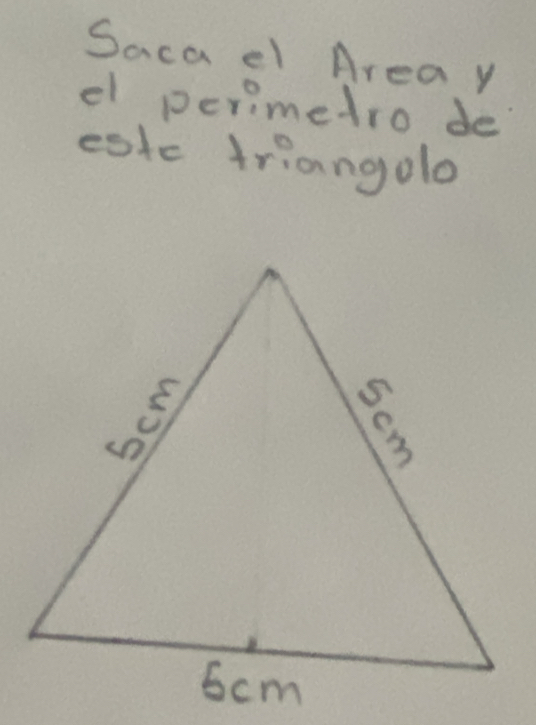 Saca el Area y
el perimetro de
este triangolo
5cm
5cm
5cm